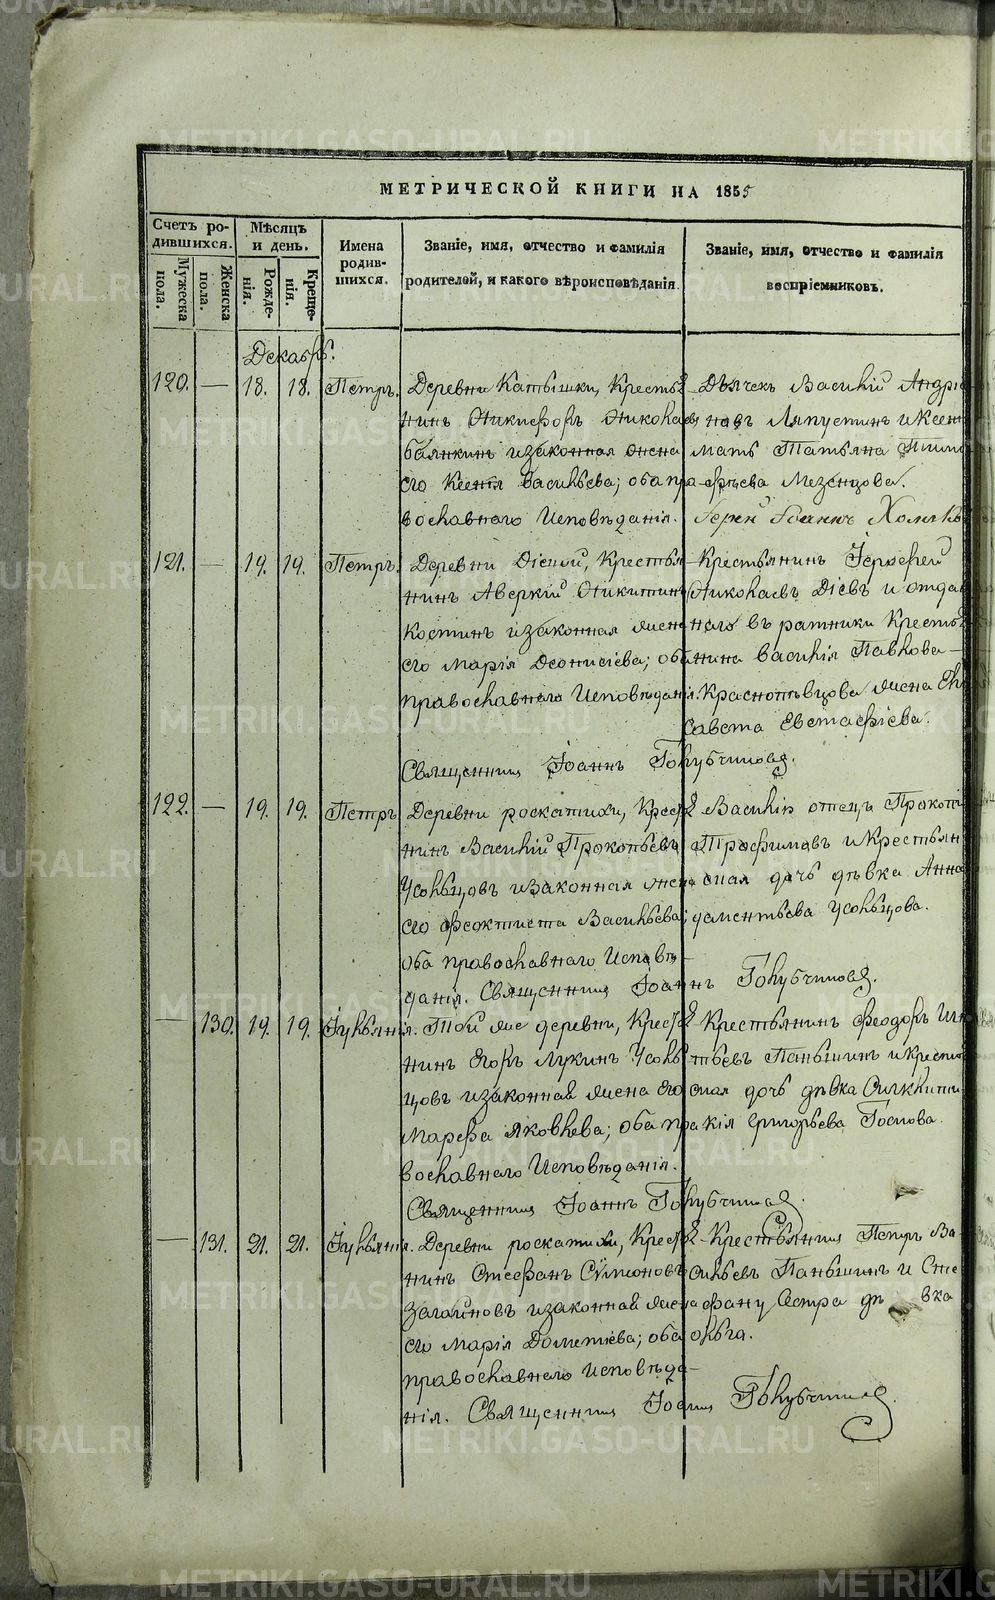 МЕТРИЧЕСКОЙ КНИГИ НА 1855
Счетъ ро-
дившихся.
Мужеска
пола.
Женска
пола.
Мѣсяцъ
и день.
Рожде-
нія.
Креще-
нія.
Имена
родив-
шихся.
Званіе, имя, отчество и фамилія
родителей, и какого вѣроисповѣданія.
Званіе, имя, отчество и фамилія
воспріемниковъ.
Декабрь.
120. — 18. 18. Петръ.
Деревни Катышки, Крестья-
нинъ Никифоръ Николаевъ
изаконная жена
его Ксенія Васильева; оба пра-
вославнаго Исповѣданія.
Дьячекъ Василій Андрія-
новъ Ляпустинъ и
мать Татьяна
Мезенцова.
Іерей Іоаннъ
121. — 19. 19. Петръ.
Деревни Діевой, Крестья-
нинъ Аверкій Никитинъ
Костинъ изаконная жена
его Марія Деонисіева; оба
православнаго Исповѣданія.
Крестьянинъ Ерофей
Николаевъ Діевъ и отдан-
наго въ ратники Крестья-
нина Василія Павлова —
Краснопѣвцова жена Ели-
савета Евстафіева.
Священникъ Іоаннъ Голубчиковъ.
122. — 19. 19. Петръ
Деревни роскатихи, Кресть-
нинъ Василій Прокопьевъ
Усольцовъ изаконная жена
его Феоктиста Васильева;
оба православнаго Исповѣ-
данія. Священникъ Іоаннъ Голубчиковъ.
Василія отецъ Прокопій
Трофимовъ и Крестьян-
ская дочь дѣвка Анна
Усольцова.
— 130. 19. 19. Іуліанія.
Той же деревни, Кресть-
нинъ Егоръ Лукинъ Усоль-
цовъ изаконная жена его
Марфа Яковлева; оба пра-
вославнаго Исповѣданія.
Крестьянинъ Феодоръ Игна-
тьевъ Паньшинъ и Крестьян-
ская дочь дѣвка Сигклити-
кія Григорьева
Священникъ Іоаннъ Голубчиковъ.
— 131. 21. 21. Іуліанія.
Деревни роскатихи, Кресть-
нинъ Стефанъ Сѵмеоновъ
Загайновъ изаконная жена
его Марія Дометіева; оба
православнаго исповѣда-
нія. Священникъ Іоаннъ Голубчиковъ.
Крестьянинъ Петръ Ва-
сильевъ Паньшинъ и Сте-
фану Сестра дѣвка
METRIKI.GASO-URAL.RU